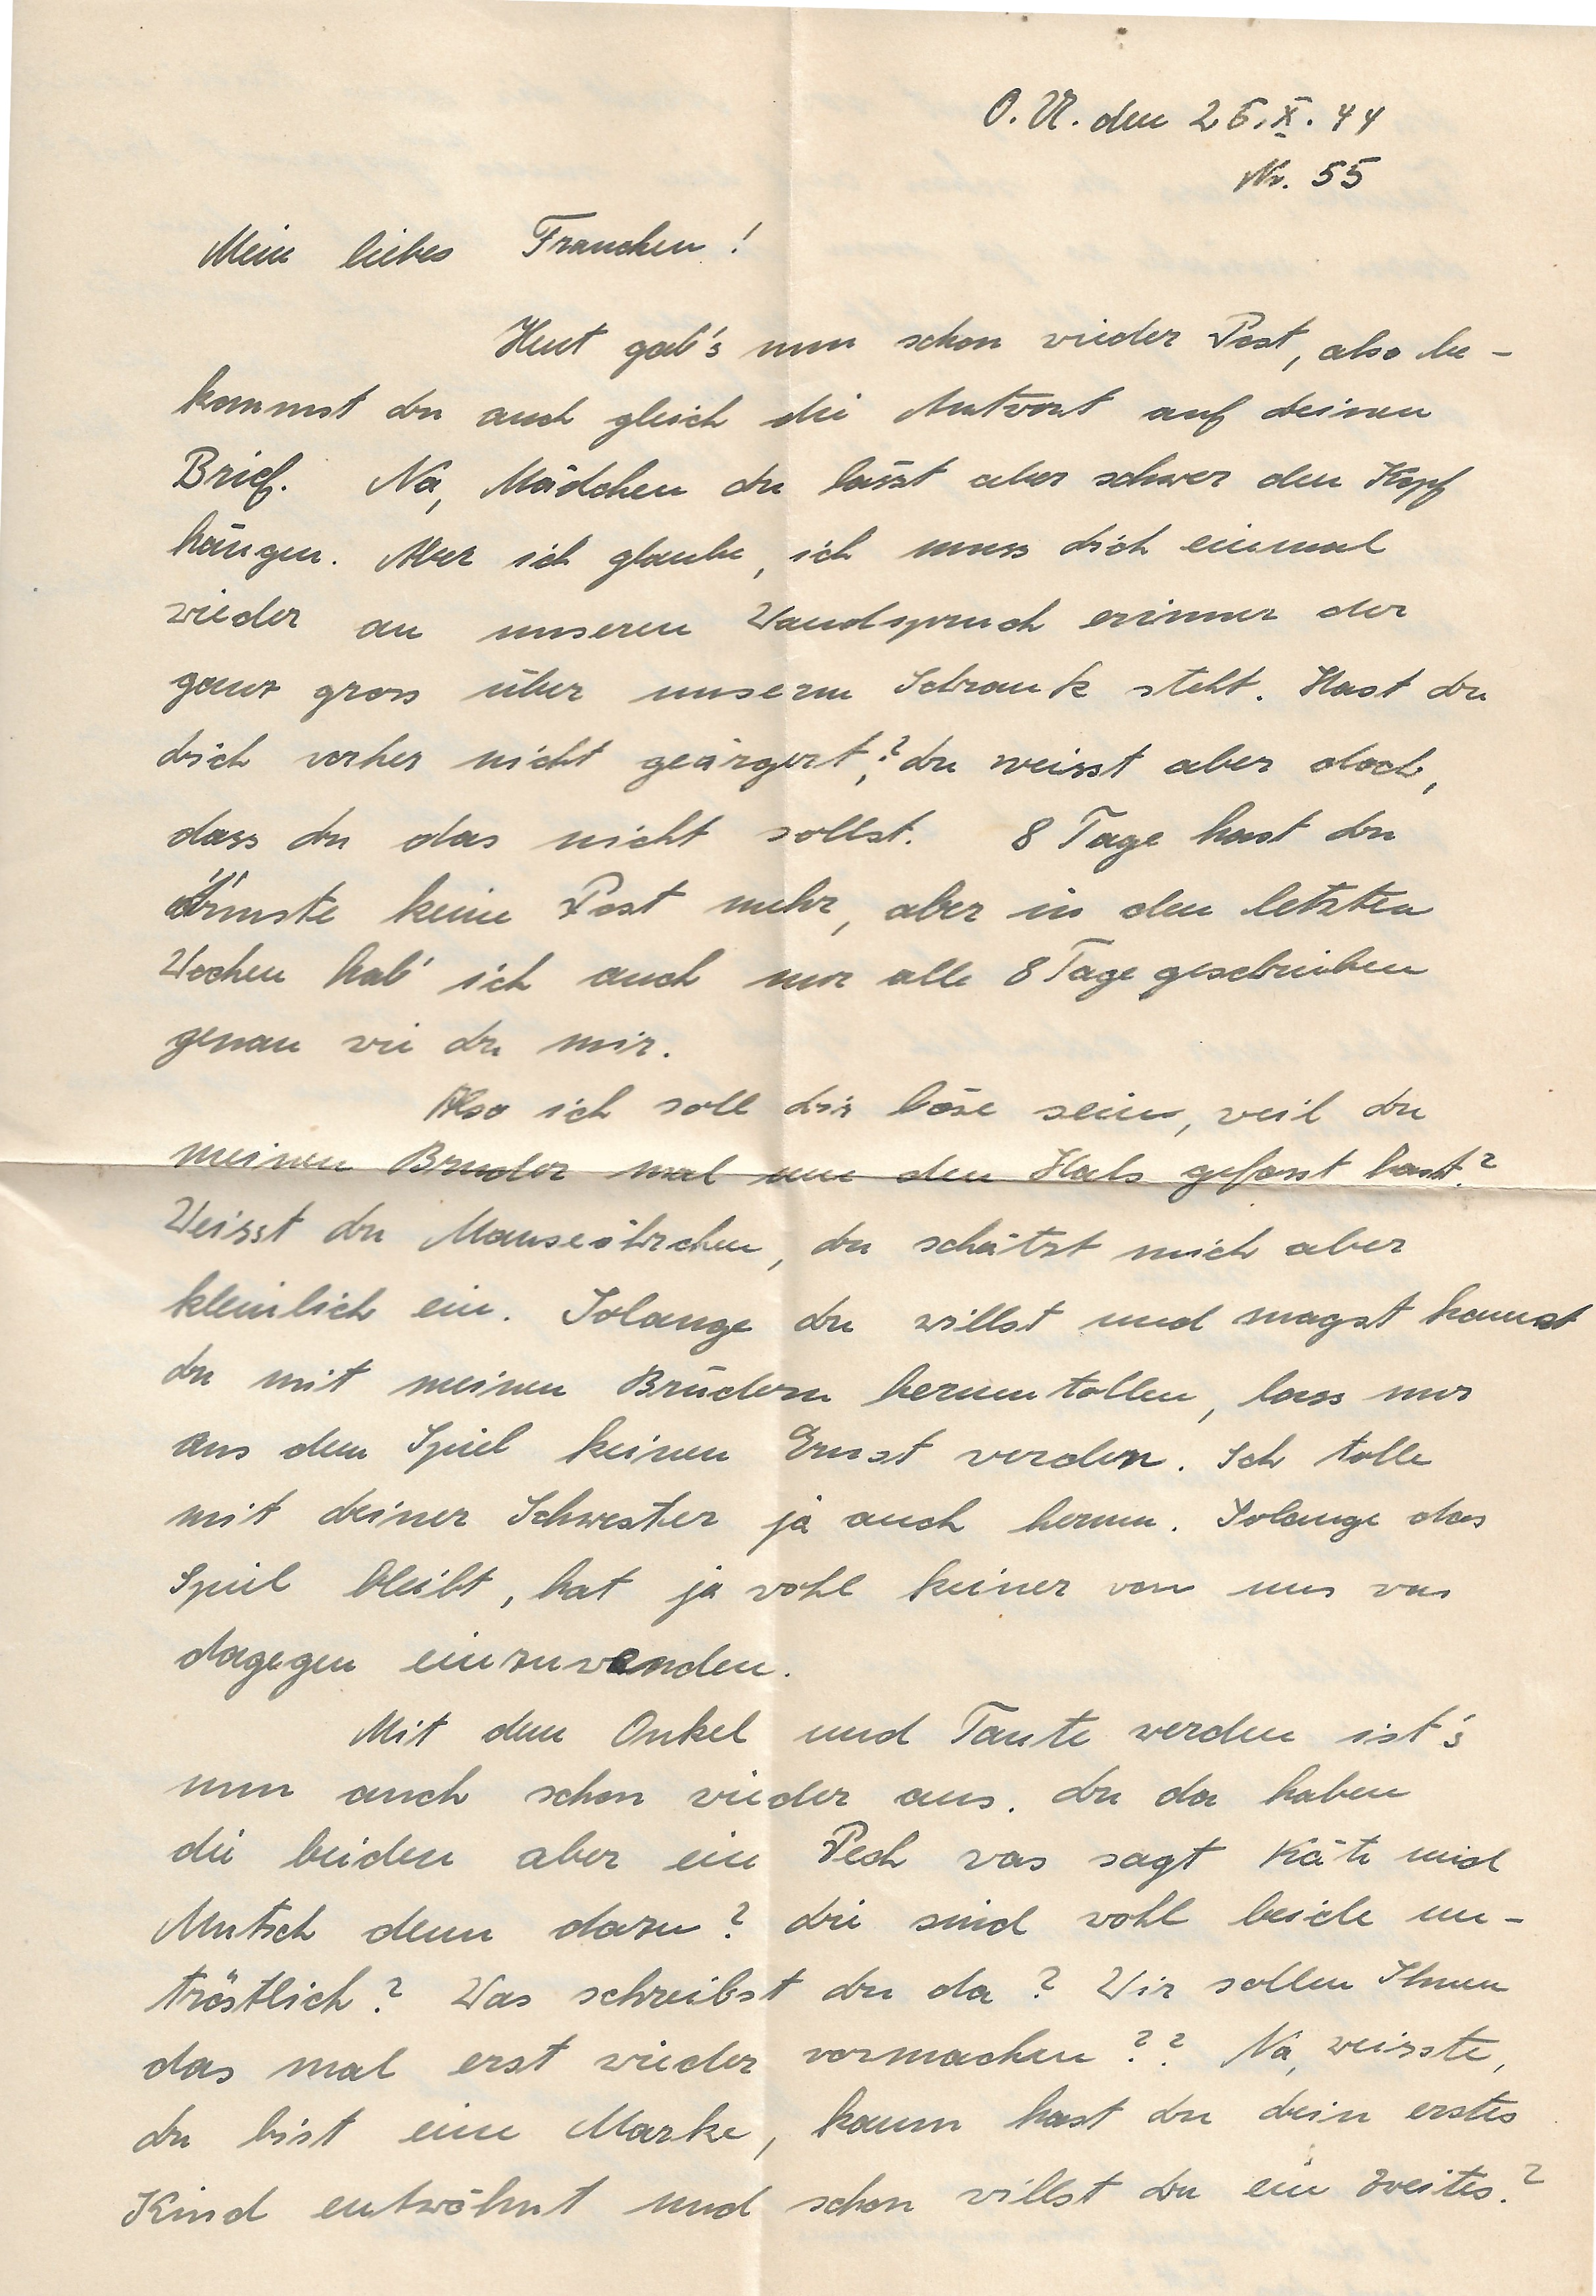 O.U. den 26.X.44
Nr. 55
Mein liebes Frauchen!
Heut gab's nun schon wieder Post, also be-
kommst du auch gleich die Antwort auf deinen
Brief. Na, Mädchen du lässt aber schwer den Kopf
hängen. Aber ich glaube, ich muss dich einmal
wieder an unseren Wandspruch erinner der
ganz gross über unserm Schrank steht. Hast du
dich vorher nicht geärgert,? du weisst aber doch,
dass du das nicht sollst. 8 Tage hast du
Ärmste keine Post mehr, aber in den letzten
Wochen hab' ich auch nur alle 8 Tage geschrieben
genau wie du mir.
Also ich soll dir böse sein, weil du
meinen Bruder mal um den Hals gefasst hast?
Weisst du Mauseöhrchen, du schätzt mich aber
kleinlich ein. Solange du willst und magst kannst
du mit meinen Brüdern herumtollen, lass nur
aus dem Spiel keinen Ernst werden. Ich tolle
mit deiner Schwester ja auch herum. Solange das
Spiel bleibt, hat ja wohl keiner von uns was
dagegen einzuwenden.
Mit dem Onkel und Tante werden ist's
nun auch schon wieder aus. du da haben
die beiden aber ein Pech was sagt Käte und
Mutsch denn dazu? die sind wohl beide un-
tröstlich? Was schreibst du da? Wir sollen Ihnen
das mal erst wieder vormachen?? Na, weisste,
du bist eine Marke, kaum hast du dein erstes
Kind entwöhnt und schon willst du ein zweites?